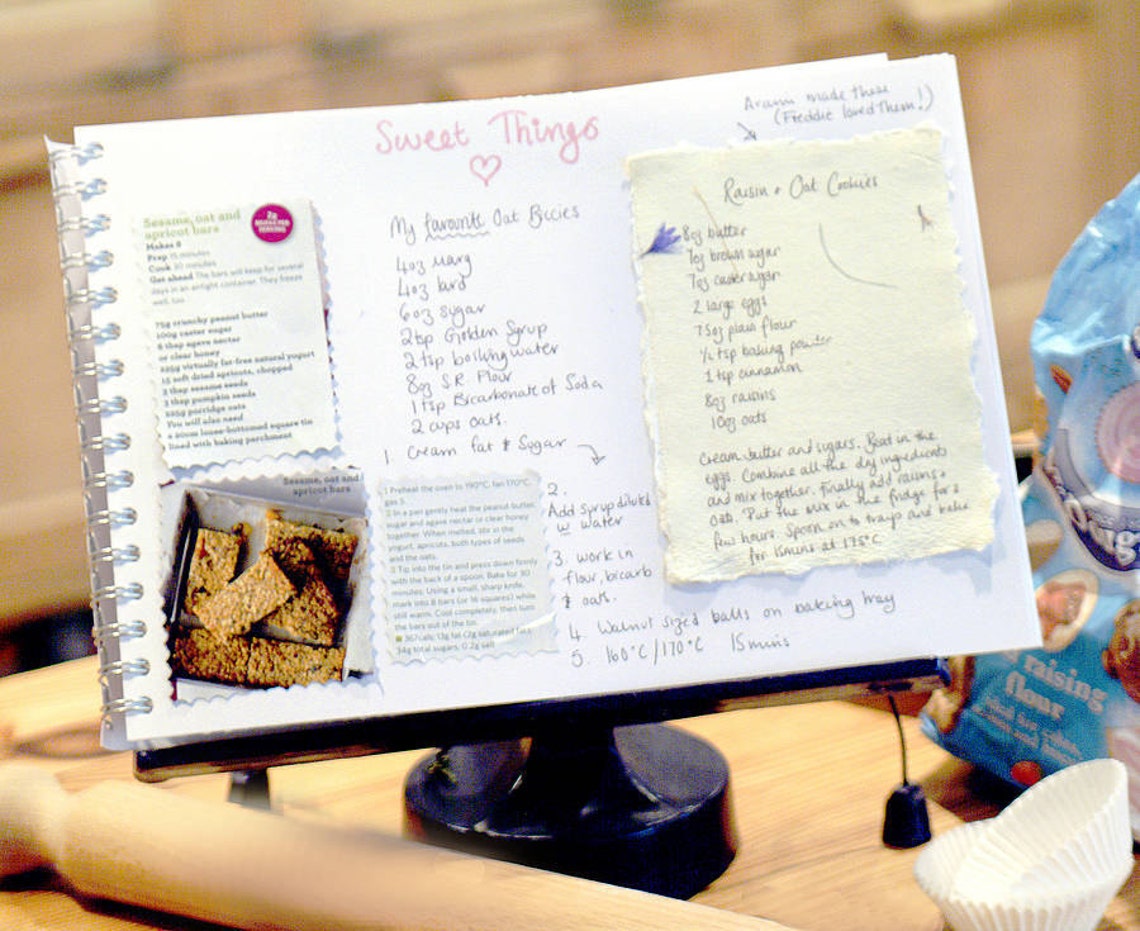 Sweet Things
Sesame, oat and
apricot bars
Makes 8
Prep 15 minutes
Cook 30 minutes
Get ahead The bars will keep for several
days in an airtight container. They freeze
well, too
75g crunchy peanut butter
100g caster sugar
6 tbsp agave nectar
or clear honey
125g virtually fat-free natural yogurt
15 soft dried apricots, chopped
2 tbsp sesame seeds
2 tbsp pumpkin seeds
porridge oats
You will also need
a 20cm loose-bottomed square tin
lined with baking parchment
Sesame, oat and
apricot bars
1 Preheat the oven to 190°C, fan 170°C,
gas 5.
2 In a pan gently heat the peanut butter,
sugar and agave nectar or clear honey
together. When melted, stir in the
yogurt, apricots, both types of seeds
and the oats.
3 Tip into the tin and press down firmly
with the back of a spoon. Bake for 30
minutes. Using a small, sharp knife,
mark into 8 bars (or 16 squares) while
still warm. Cool completely, then turn
the bars out of the tin.
367cals; 13g fat (2g saturated fat);
34g total sugars; 0.2g salt
My favourite Oat Biccies
4oz Marg
4oz lard
6oz sugar
2tbp Golden Syrup
2 tsp boiling water
8oz S.R. Flour
1 tsp Bicarbonate of Soda
2 cups oats.
1. Cream fat & Sugar
2.
Add syrup diluted
w water
3. work in
flour, bicarb
& oats.
4. Walnut sized balls on baking tray
5. 160°C/170°C 15 mins
made these
(Freddie loved Them!)
Raisin + Oat Cookies
8oz butter
7oz brown sugar
7oz caster sugar
2 large eggs
7.5oz plain flour
½ tsp baking powder
1 tsp cinnamon
8oz raisins
10oz oats
Cream butter and sugars. Beat in the
eggs. Combine all the dry ingredients
and mix together. Finally add raisins +
oats. Put the mix in the fridge for a
few hours. Spoon on to trays and bake
for 15mins at 175°C
raising
flour